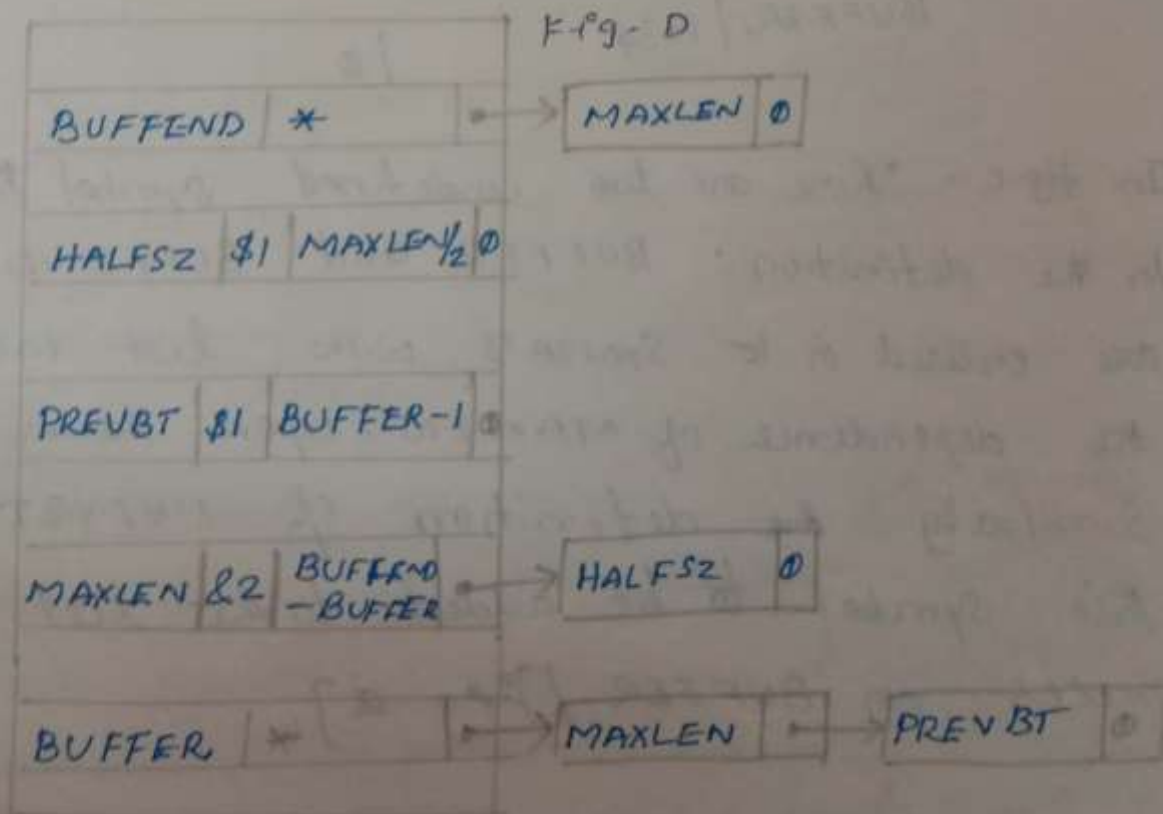 Fig- D
BUFFEND * MAXLEN 0
HALFSZ $1 MAXLEN/2 0
PREVBT $1 BUFFER-1 0
MAXLEN &2 BUFFEND
-BUFFER HALFSZ 0
BUFFER * MAXLEN PREVBT 0